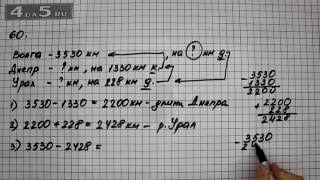 4du5.ru
60.
Волга - 3530 км, на ? км д.
Днепр - ? км, на 1330 км к.
Урал - ? км, на 228 км д.
1) 3530 - 1330 = 2200 км - длина Днепра
2) 2200 + 228 = 2428 км - р. Урал
3) 3530 - 2428 =
- 3530
1330
2200
+ 2200
228
2428
- 3530
2